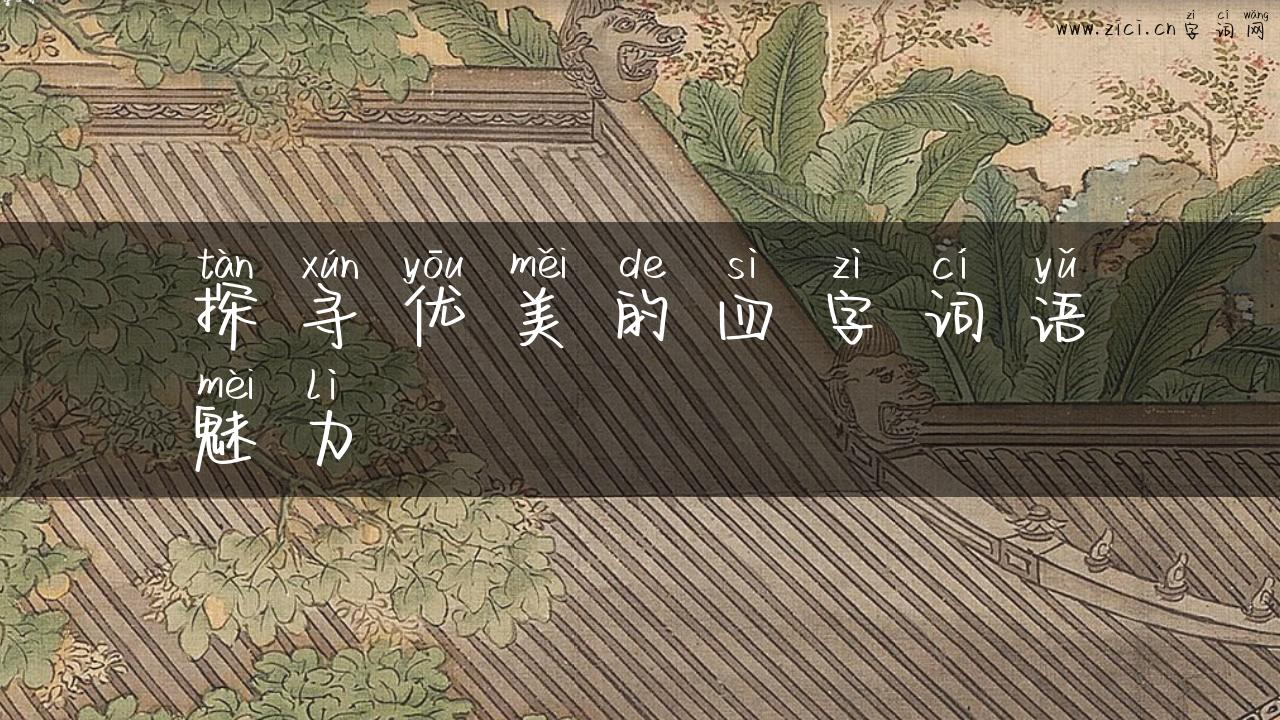 zì cí wǎng
www.zici.cn字词网
tàn xún yōu měi de sì zì cí yǔ
探寻优美的四字词语
mèi lì
魅力